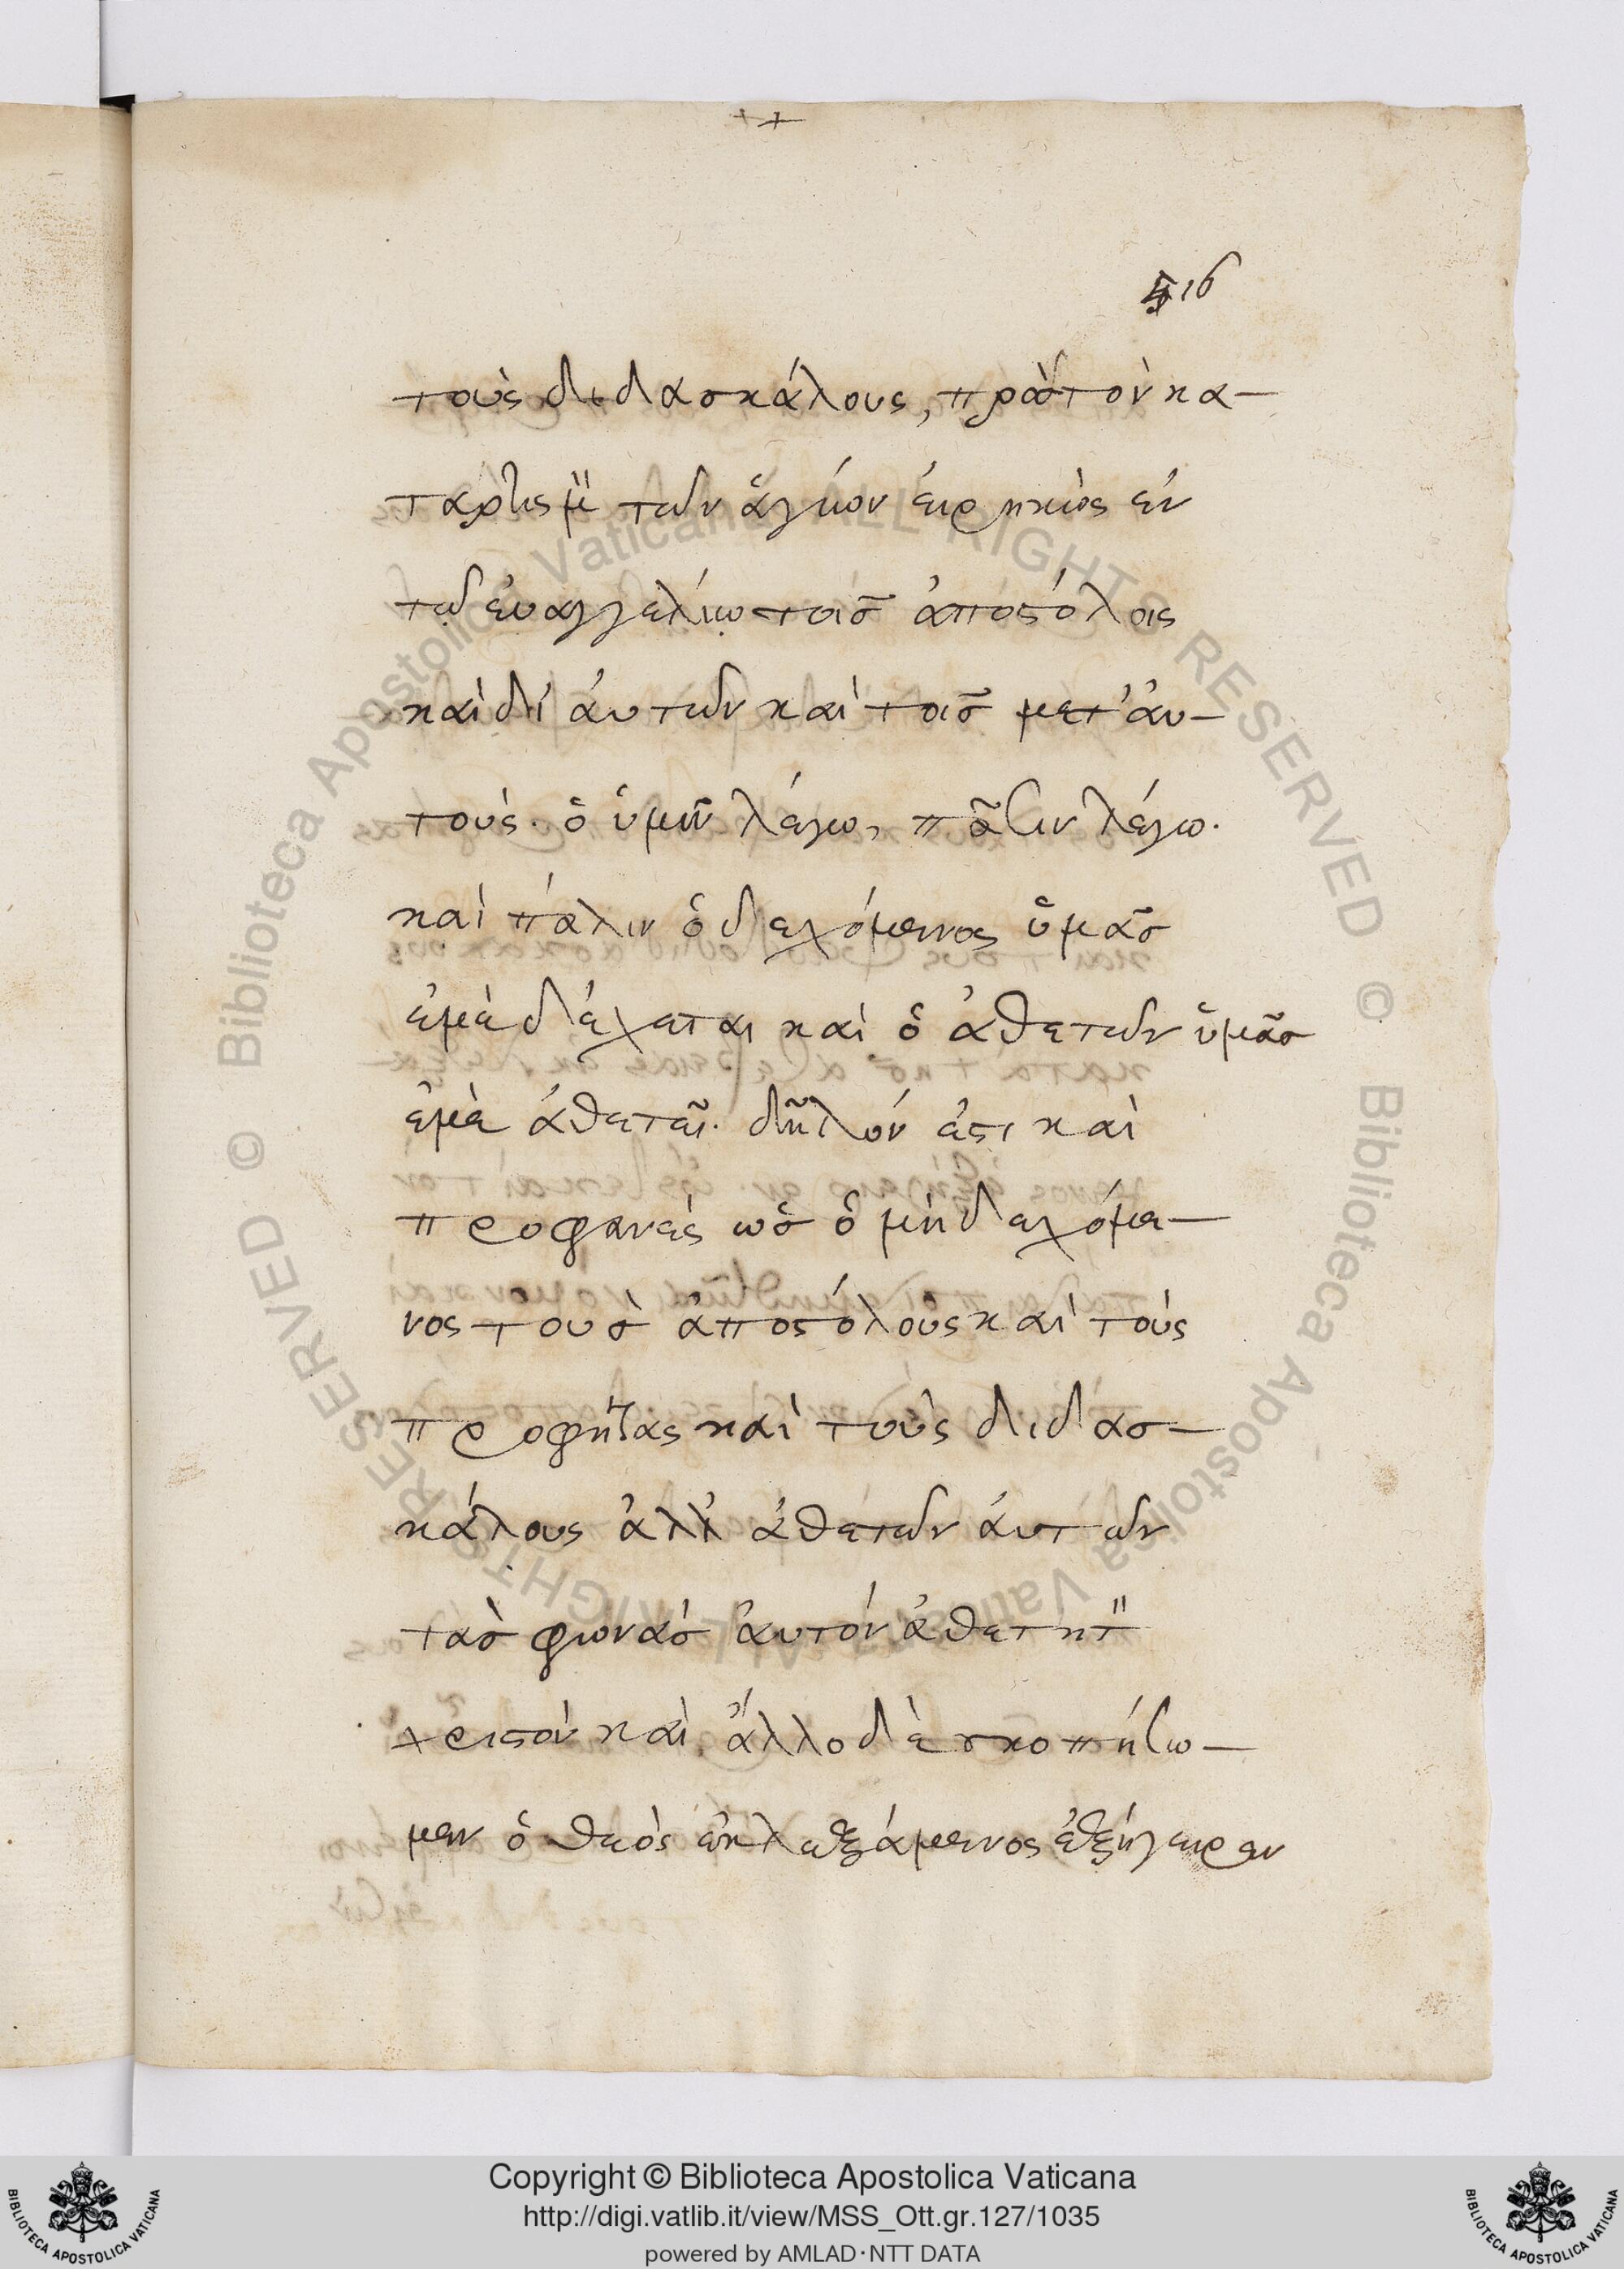 516
τοὺς διδασκάλους, πρὸς τὸν κα-
ταρτισμὸν τῶν ἁγίων εἰρηκὼς ἐν
τῷ εὐαγγελίῳ τοῖς ἀποστόλοις
καὶ δι' αὐτῶν καὶ τοῖς μετ' αὐ-
τούς. ὃ ὑμῖν λέγω, πᾶσιν λέγω.
καὶ πάλιν ὁ δεχόμενος ὑμᾶς
ἐμὲ δέχεται καὶ ὁ ἀθετῶν ὑμᾶς
ἐμὲ ἀθετεῖ. δῆλόν ἐστι καὶ
προφανὲς ὡς ὁ μὴ δεχόμε-
νος τοὺς ἀποστόλους καὶ τοὺς
προφήτας καὶ τοὺς διδασ-
κάλους ἀλλ' ἀθετῶν αὐτῶν
τὰς φωνὰς αὐτὸν ἀθετεῖ τὸν
χριστόν καὶ ἄλλο δὲ σκοπήσω-
μεν ὁ θεὸς ἐκλεξάμενος ἐξήγειρεν
Copyright © Biblioteca Apostolica Vaticana
http://digi.vatlib.it/view/MSS_Ott.gr.127/1035
powered by AMLAD·NTT DATA
BIBLIOTECA APOSTOLICA VATICANA
BIBLIOTECA APOSTOLICA VATICANA
© Biblioteca Apostolica Vaticana ALL RIGHTS RESERVED © Biblioteca Apostolica Vaticana ALL RIGHTS RESERVED